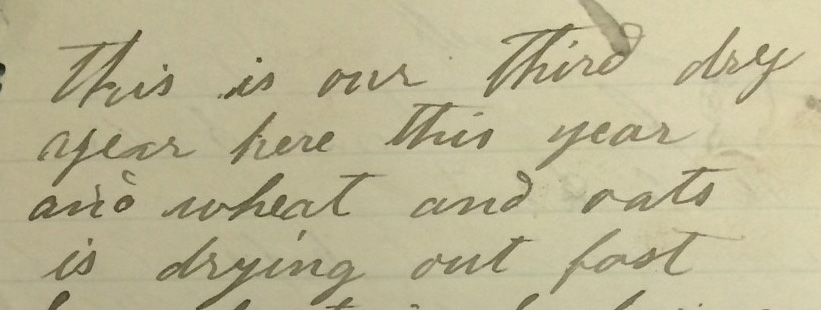 this is our third dry
year here this year
and wheat and oats
is drying out fast